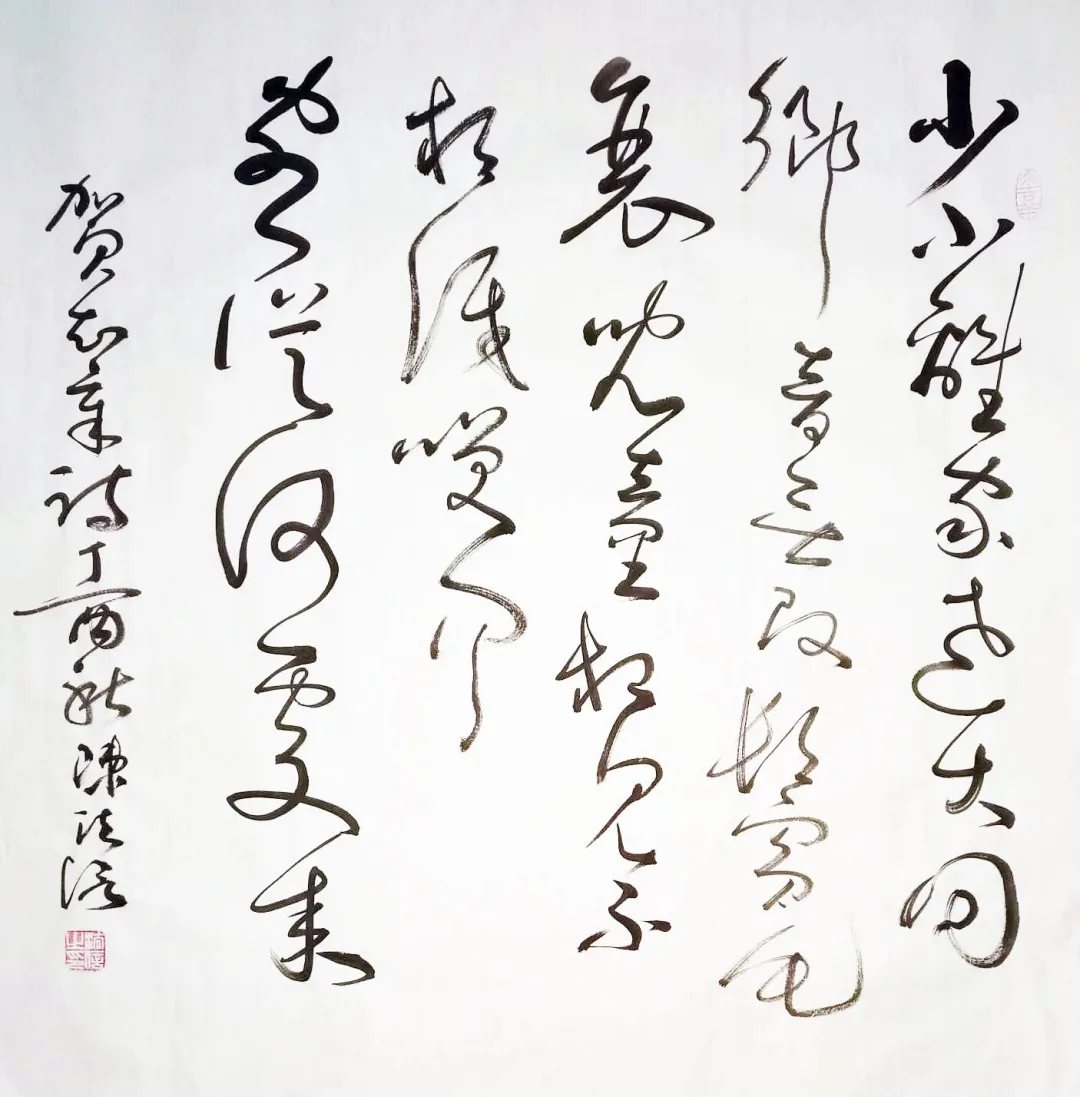 少小離家老大回
鄉音無改鬢毛
衰兒童相見不
相識咲問
客從何處來
賀知章詩丁酉秋陳法